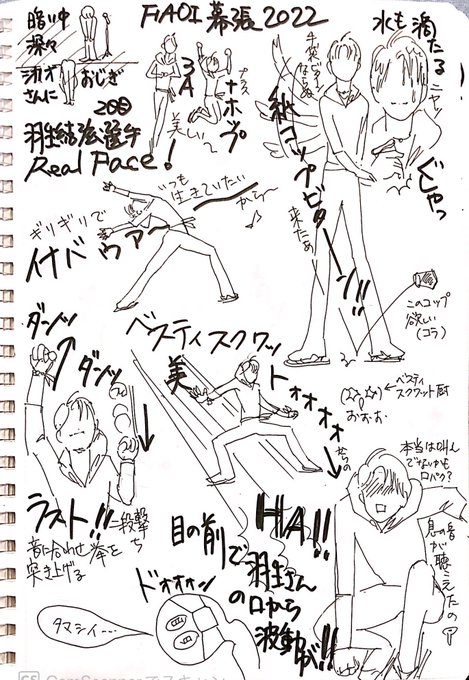 FAOI 幕張 2022
暗い中
深々
おじぎ
さんに
羽生結弦選手
Real Face!
3A
美しい
プラス
ホップ
水も滴たる
ニヤッ
ぐしゃっ
紙コップビターーン!!
来たぁ
このコップ
欲しい
(コラ)
いつも
生きていたい
から〜♪
ギリギリで
イナバウアー
ダンッ
ダンッ
ベスティスクワッ
トォォォォ
美
←ベスティ
スクワット厨
おおお
本当は叫ん
でないかも
口パク?
息の音
が
聴えたの
ラスト!!
一段撃ち
音に合わせ拳を
突き上げる
目の前で
HA!!
羽生さん
の口から
波動が!!
ドォォォン
タマシイ…